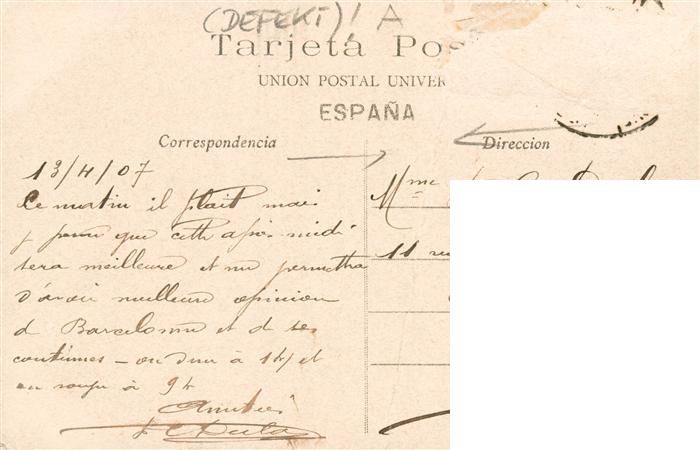 (DEFEKT)! A
Tarjeta Pos
UNION POSTAL UNIVER
ESPAÑA
Correspondencia
Direccion
13/4/07
Ce matin il plait mais
que cette après-midi
sera meilleure et me permettra
d'avoir meilleure opinion
d Barcelonne et d ses
coutûmes – on dîne à 14/ et
on soupe à 9h
Amitiés
Mme
11 ru